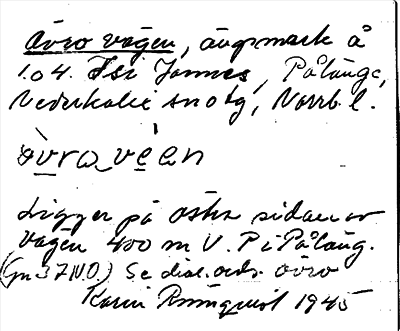 Övro vägen, ängsmark å
1.04. Isi Jonnes, Pålänge,
Nederkalix sn o tg, Norrb. l.
òvra vèen
Ligger på östra sidan av
vägen 400 m V. P i Påläng.
(jm 37 N.O.) Se dial.ordb. övro
Karin Rönnquist 1945